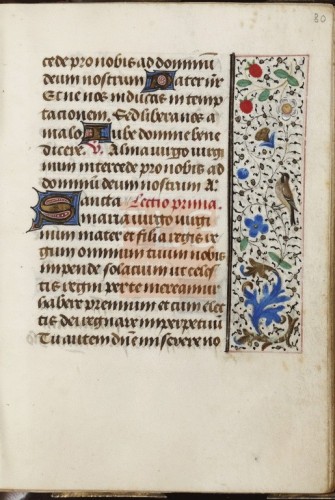 80
cede pro nobis ad dominū
deum nostrum Pater nr̄
Et ne nos inducas in temp
tacionem. Sed libera nos a
malo Iube domne bene
dicere. V. Alma virgo virgi
num intercede pro nobis ad
dominū deum nostrum A.
Sancta Lectio prima.
maria virgo virgi
num mater et filia regis re
gum omnium tuum nobis
impende solacium ut celes
tis regni per te mereamur
habere premium et cum elec
tis dei regnare in perpetuū
Tu autem dn̄e miserere no